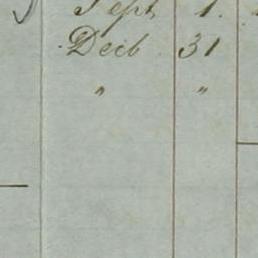 Sept. 1.
Decb 31
" "